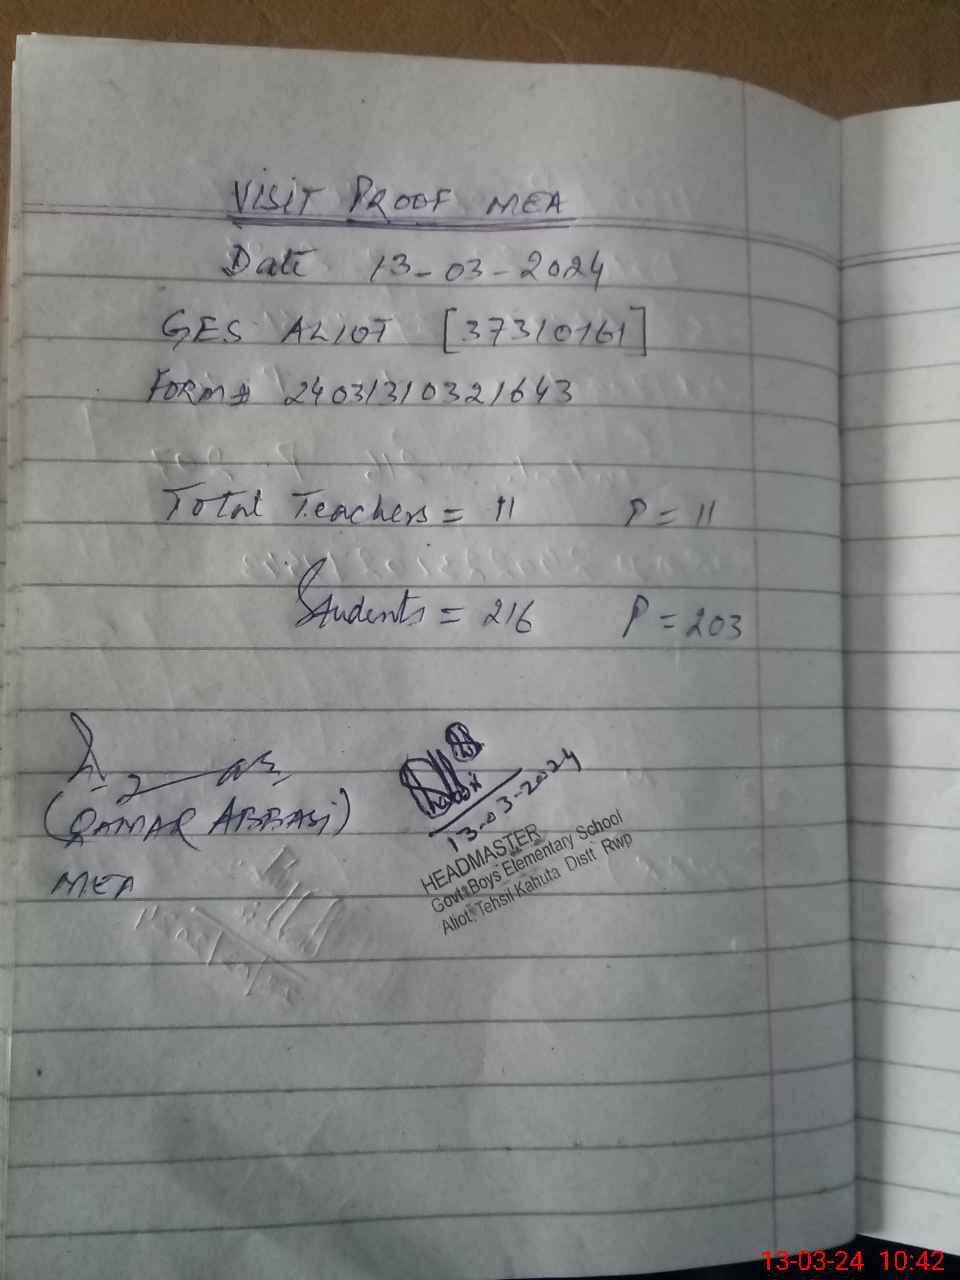 VISIT PROOF MEA
Date 13-03-2024
GES ALIOT [37310161]
FORM# 24031310321643
Total Teachers = 11 P = 11
Students = 216 P = 203
(QAMAR ABBASI)
MEA
13-03-2024
HEADMASTER
Govt: Boys Elementary School
Aliot, Tehsil Kahuta Distt Rwp
13-03-24 10:42